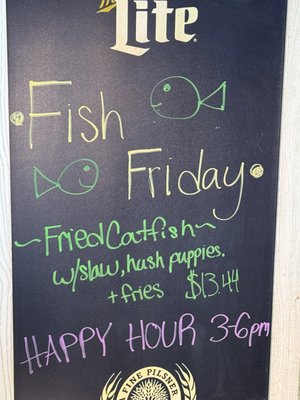 Lite
Fish
Friday
~Fried Catfish~
w/slaw, hush puppies.
+ fries $13.44
HAPPY HOUR 3-6pm
A FINE PILSNER